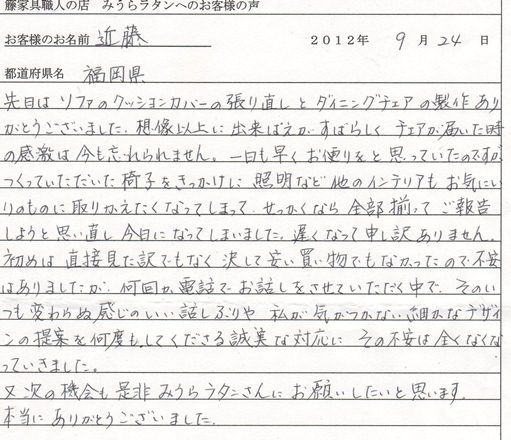 藤家具職人の店　みうらラタンへのお客様の声
お客様のお名前 近藤　２０１２年 9 月 24 日
都道府県名　福岡県
先日は ソファのクッションカバーの張り直しと ダイニングチェアの製作 あり
がとうございました。想像以上に 出来ばえが すばらしく チェアが届いた時
の感激は 今も忘れられません。一日も早く お便りをと 思っていたのですが
つくっていただいた 椅子をきっかけに 照明など 他のインテリアも お気にい
りのものに 取りかえたくなってしまって、せっかくなら 全部揃って ご報告
しようと思い直し 今日になってしまいました。遅くなって申し訳ありません。
初めは 直接見た訳でもなく 決して安い買い物でもなかったので不安
はありましたが、何回か電話で お話しをさせていただく中で、そのいつ
も変わらぬ感じのいい 話しぶりや 私が気がつかない細かなデザイ
ンの提案を何度もしてくださる誠実な対応に その不安は全くなくな
っていきました。
又 次の機会も 是非 みうらラタンさんに お願いしたいと思います。
本当に ありがとうございました。